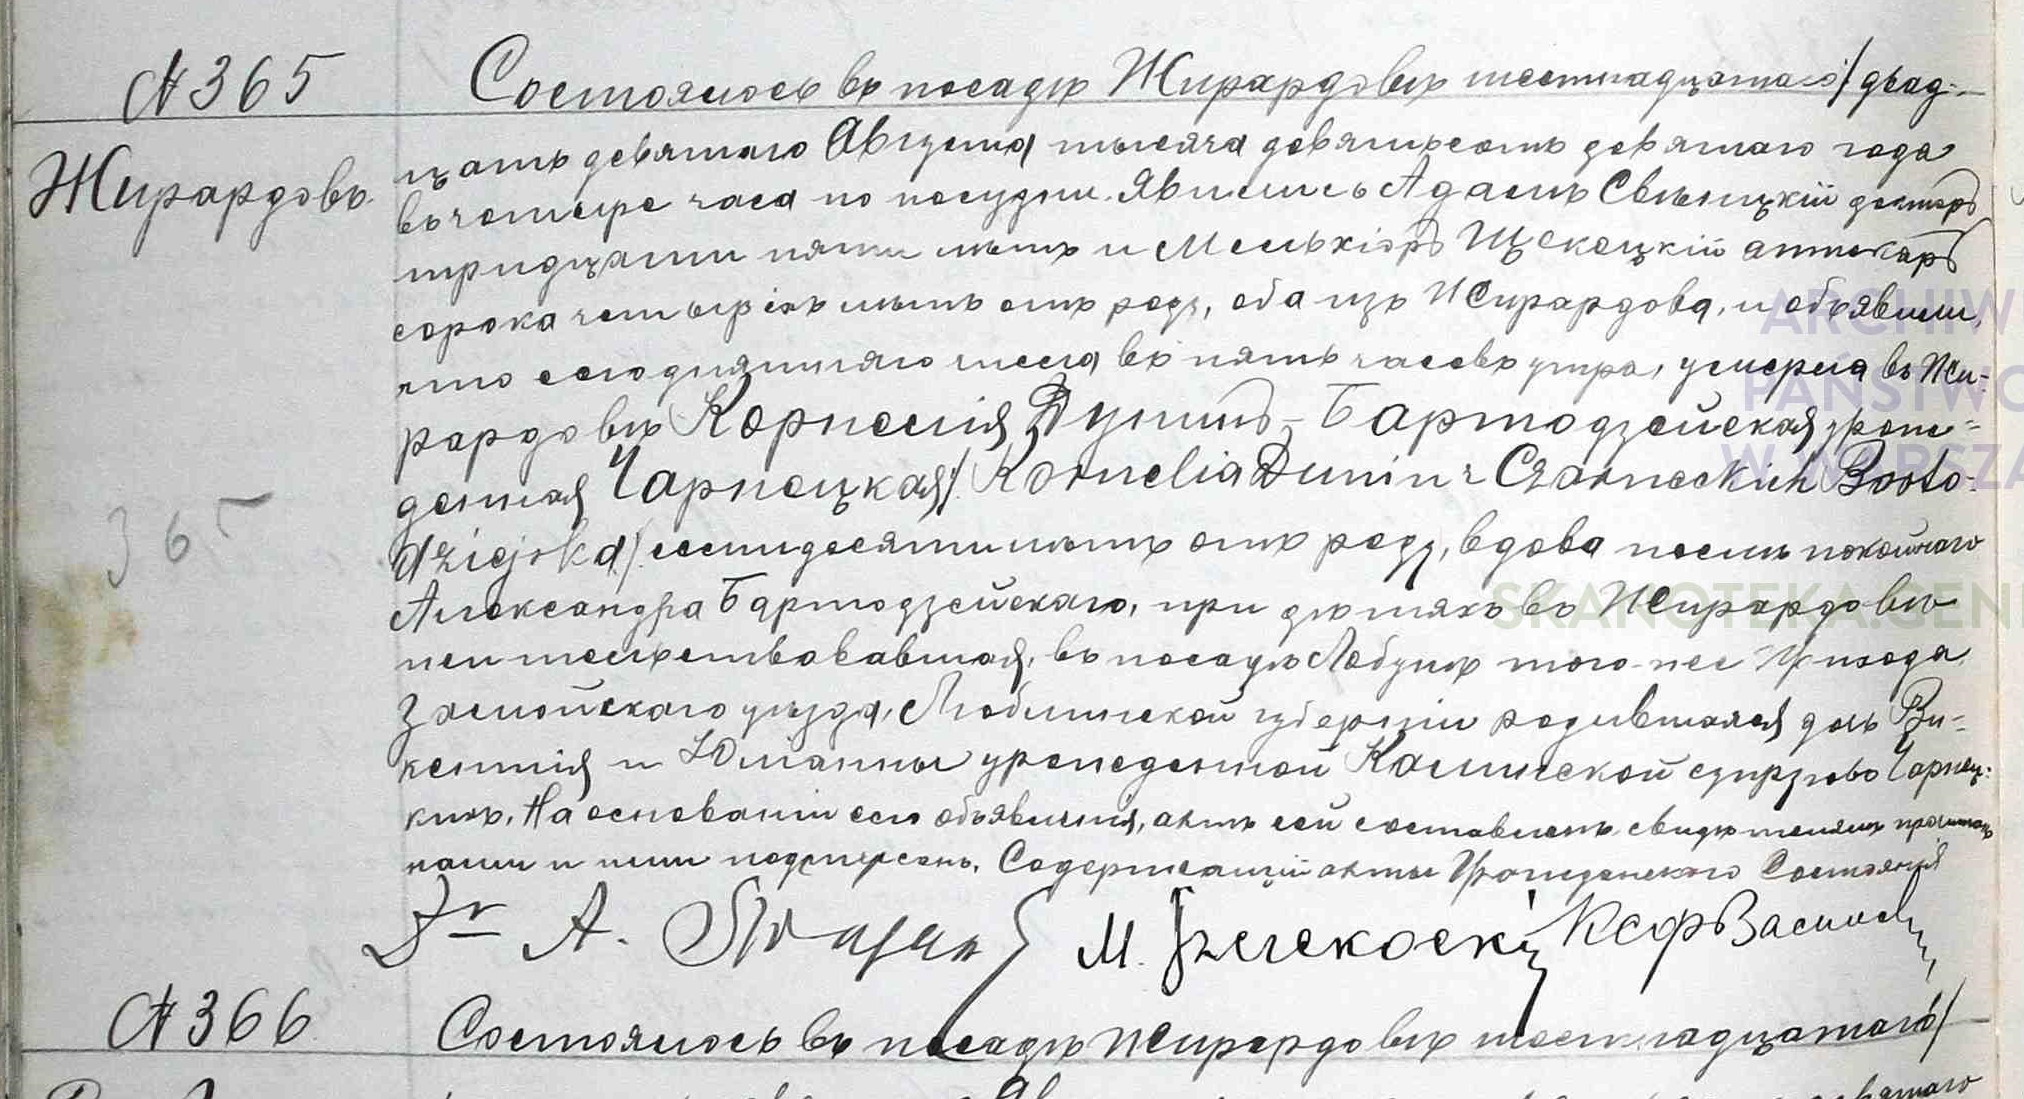 № 365
Состоялось въ посадѣ Жирардовѣ шестнадцатаго/двад-
Жирардовъ.
цать девятаго Августа тысяча девятьсотъ девятаго года
въ четыре часа по полудни. Явились Адамъ Свѣнцкій докторъ
тридцати пяти лѣтъ и Мельхіоръ Щекоцкій аптекарь
сорока четырехъ лѣтъ отъ роду, оба изъ Жирардова, и объявили,
что сегодняшняго числа въ пять часовъ утра, умерла въ Жи-
рардовѣ Корнелія Дунинъ-Бартодзейская урож-
денная Чарнецкая /Kornelia Dunin z Czarneckich Barto-
365
dziejska/ семидесяти лѣтъ отъ роду, вдова послѣ покойнаго
Александра Бартодзейскаго, при дѣтяхъ въ Жирардовѣ
жительствовавшая, въ посадѣ того-же Прихода
Замойскаго уѣзда, Люблинской губерніи родившаяся дочь Ви-
кентія и Юліанны урожденной Калинской супруговъ Чарнец-
кихъ. На основаніи сего объявленія, актъ сей составленъ, свидѣтелямъ прочитанъ
нами и ними подписанъ. Содержащій акты Гражданскаго Состоянія
Dr A.
M.
№ 366
Состоялось въ посадѣ Жирардовѣ шестнадцатаго/